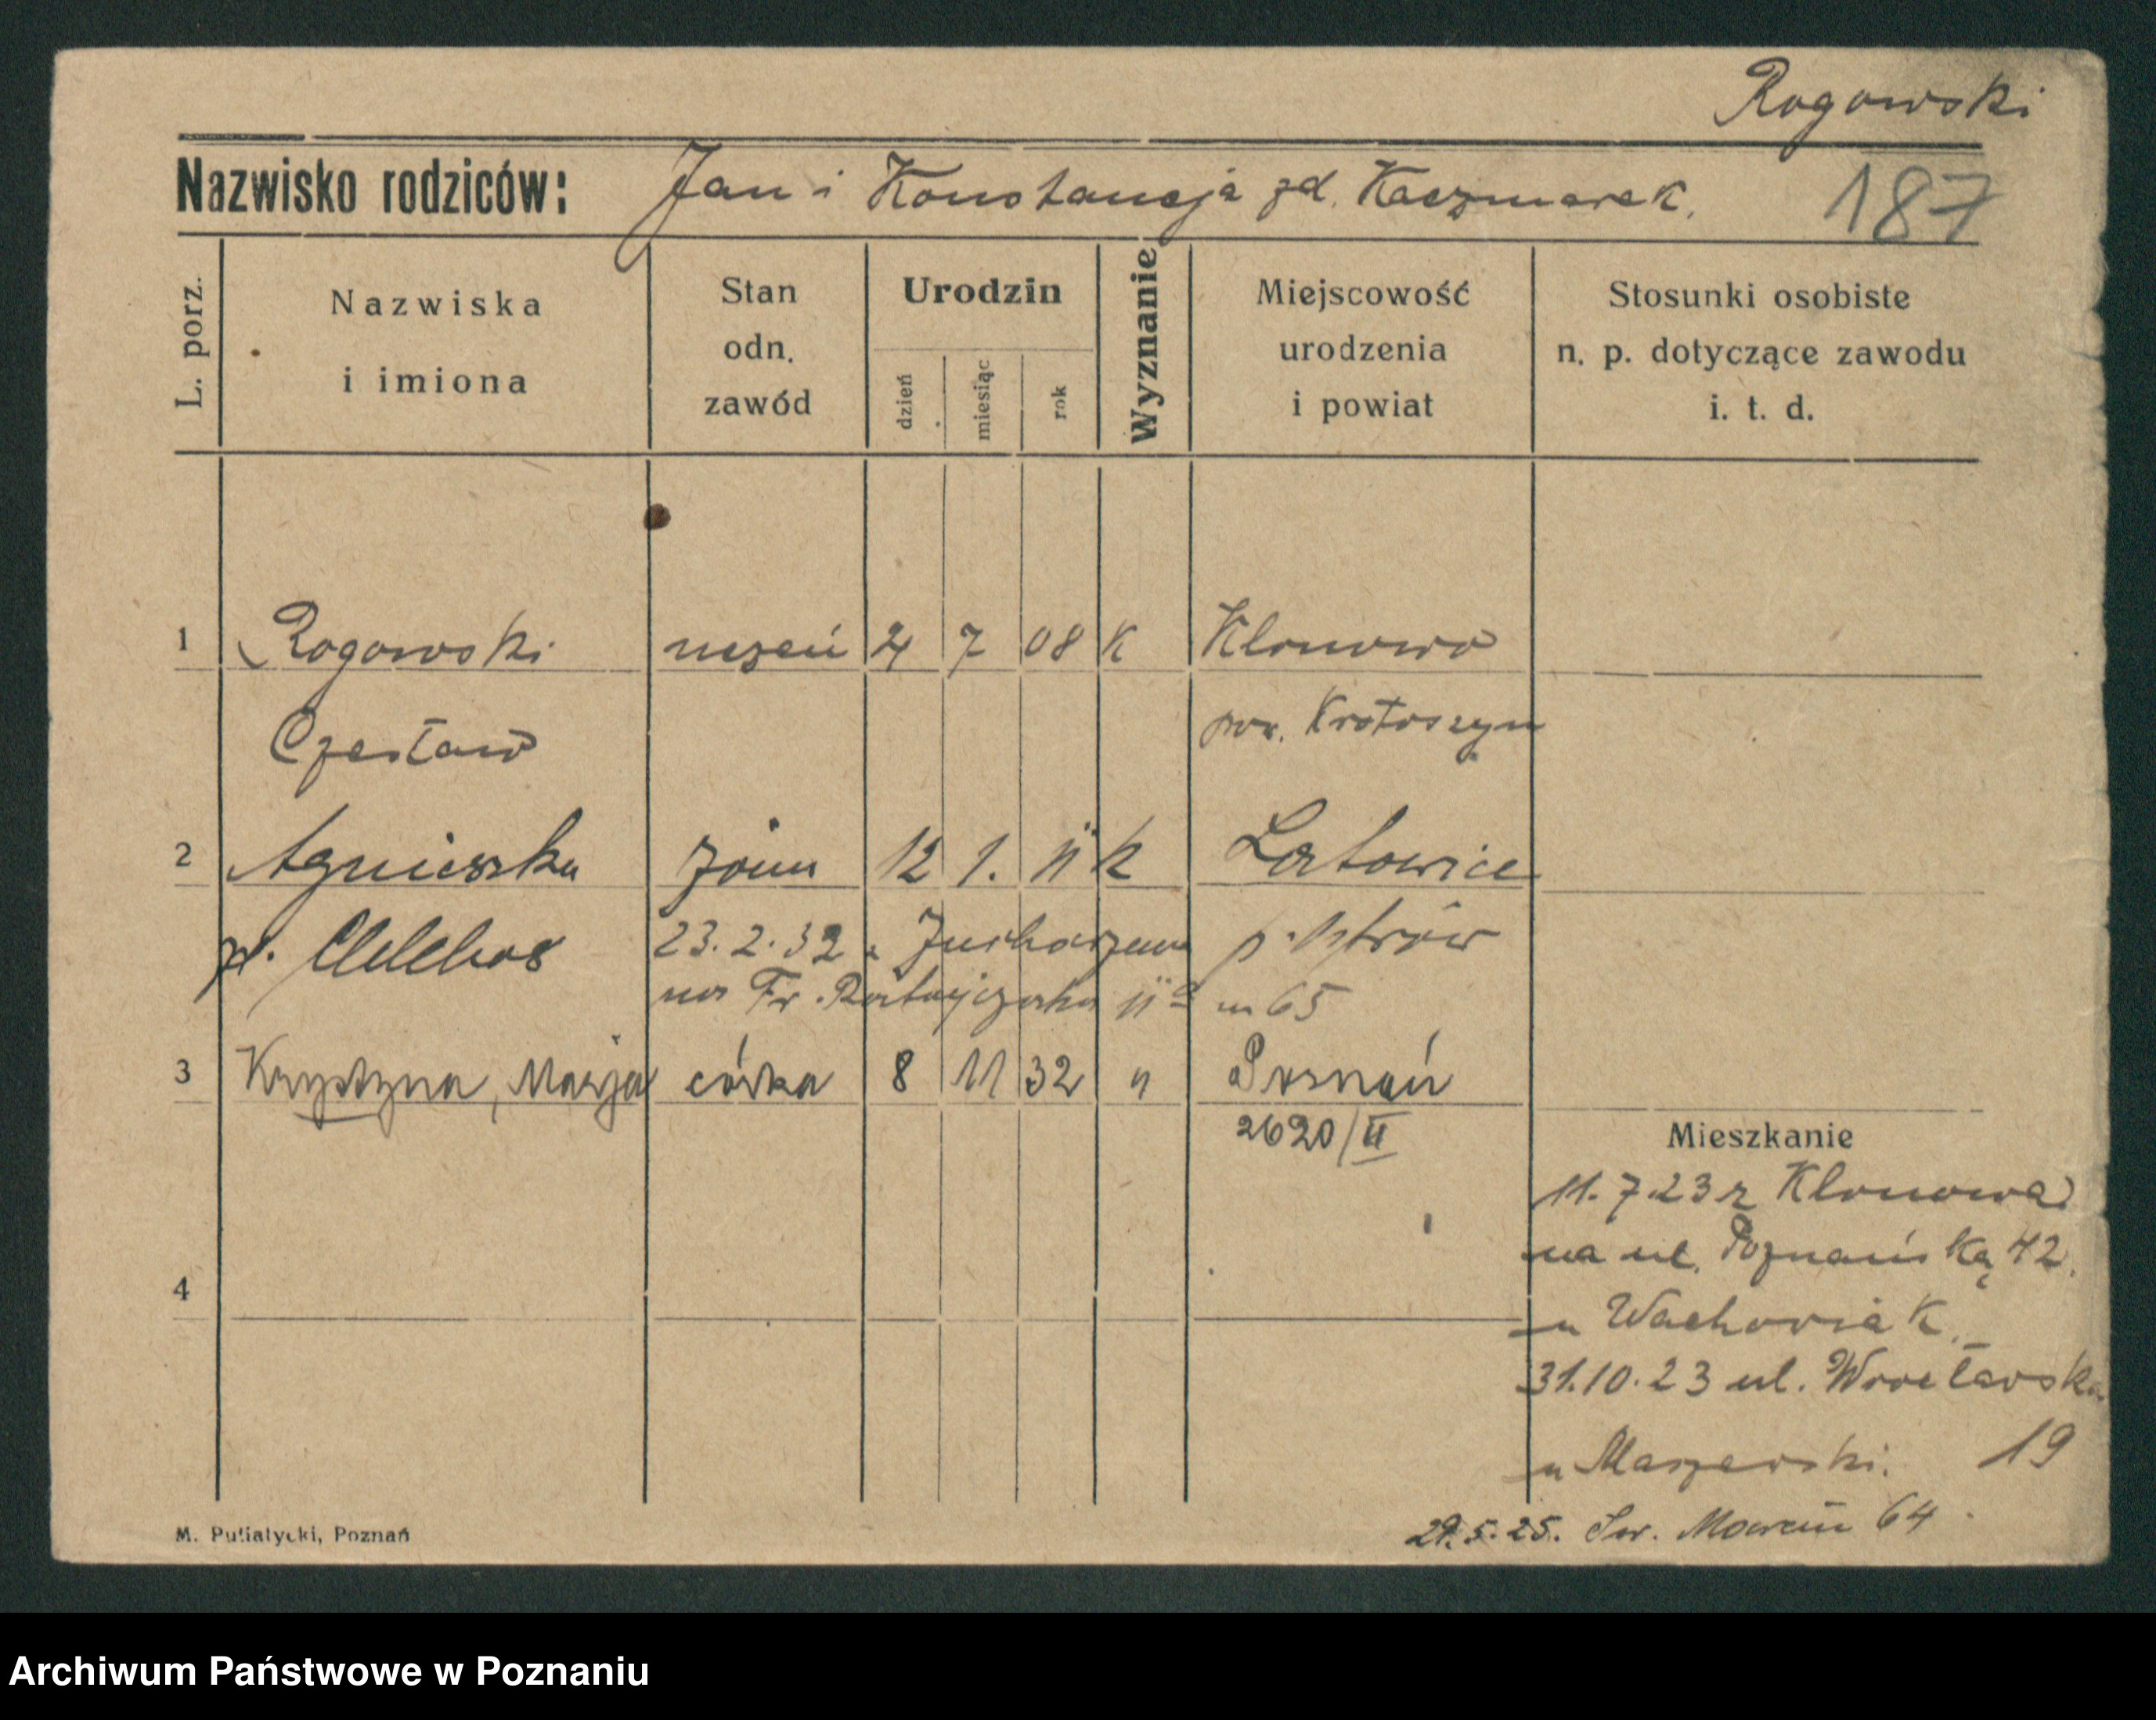 Rogowski
Nazwisko rodziców: Jan i Konstancja zd. Kaczmarek. 187
L. porz.
Nazwiska i imiona
Stan odn. zawód
Urodzin
dzień miesiąc rok
Wyznanie
Miejscowość urodzenia i powiat
Stosunki osobiste n. p. dotyczące zawodu i. t. d.
1 Rogowski uczeń 2 7 08 K Klonowo
Czesław pow. Krotoszyn
2 Agnieszka żona 12 1. 11 k Latowice
23.2.32 p. Ostrów
na Fr. Ratajczaka 11a m 65
3 Krystyna, Marja córka 8 11 32 " Poznań
2620/II
Mieszkanie
11.7.23 z Klonowa
na ul. Poznańską 42.
4
u Wachowiak.
31.10.23 ul. Wrocławska
u Maszewski. 19
29.5.25. Św. Marcin 64
M. Putiatycki, Poznań
Archiwum Państwowe w Poznaniu